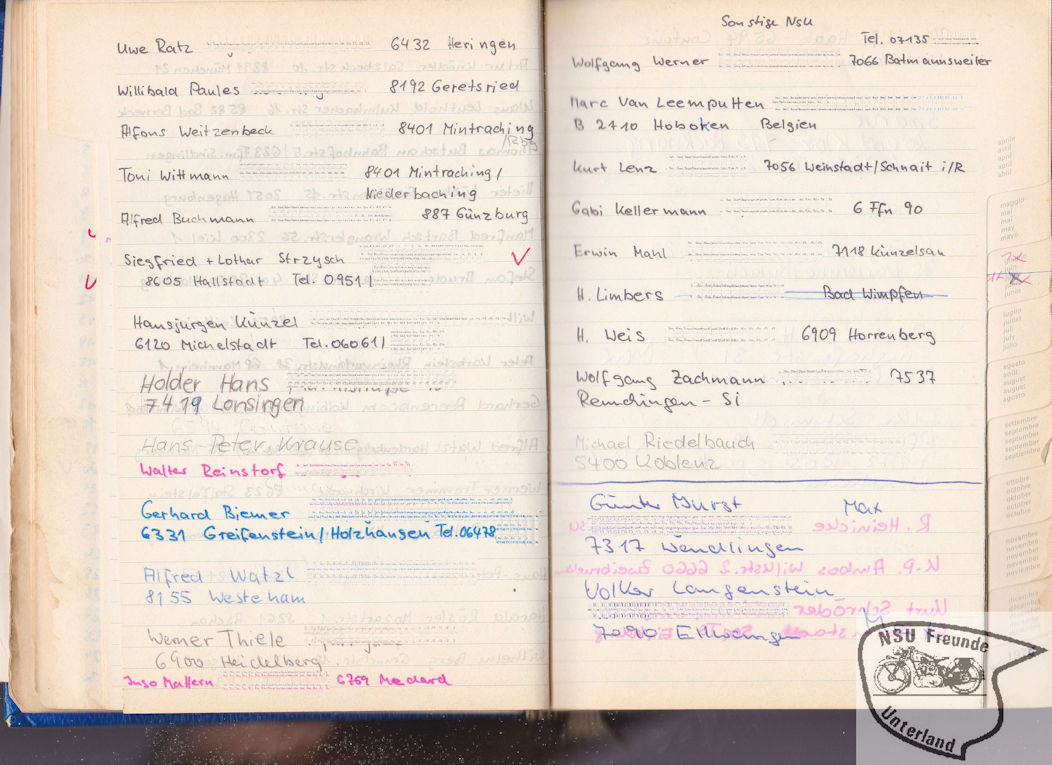 Uwe Ratz 6432 Heringen
Willibald Paules 8192 Geretsried
Alfons Weitzenbeck 8401 Mintraching
Toni Wittmann 8401 Mintraching/
Niederbaching
Alfred Buchmann 887 Günzburg
Siegfried + Lothar Strzysch
8605 Hallstadt Tel. 0951/
Hansjürgen Künzel
6120 Michelstadt Tel. 06061/
Holder Hans
7419 Lonsingen
Hans-Peter Krause
Walter Reinstorf
Gerhard Biemer
6331 Greifenstein/Holzhausen Tel. 06478
Alfred Watzl
8155 Westeham
Werner Thiele
6900 Heidelberg
Ingo Mattern 6759 Medard
Sonstige NSU
Tel. 07135
Wolfgang Werner 7066 Batmannsweiler
Marc Van Leemputten
B 2710 Hoboken Belgien
Kurt Lenz 7056 Weinstadt/Schnait i/R
Gabi Kellermann 6 Ffn 90
Erwin Mahl 7118 Künzelsau
H. Limbers Bad Wimpfen
H. Weis 6909 Horrenberg
Wolfgang Zachmann 7537
Remchingen - Si
Michael Riedelbauch
5400 Koblenz
Günter Wurst Max
7317 Wendlingen
Volker Langenstein
NSU Freunde
Unterland